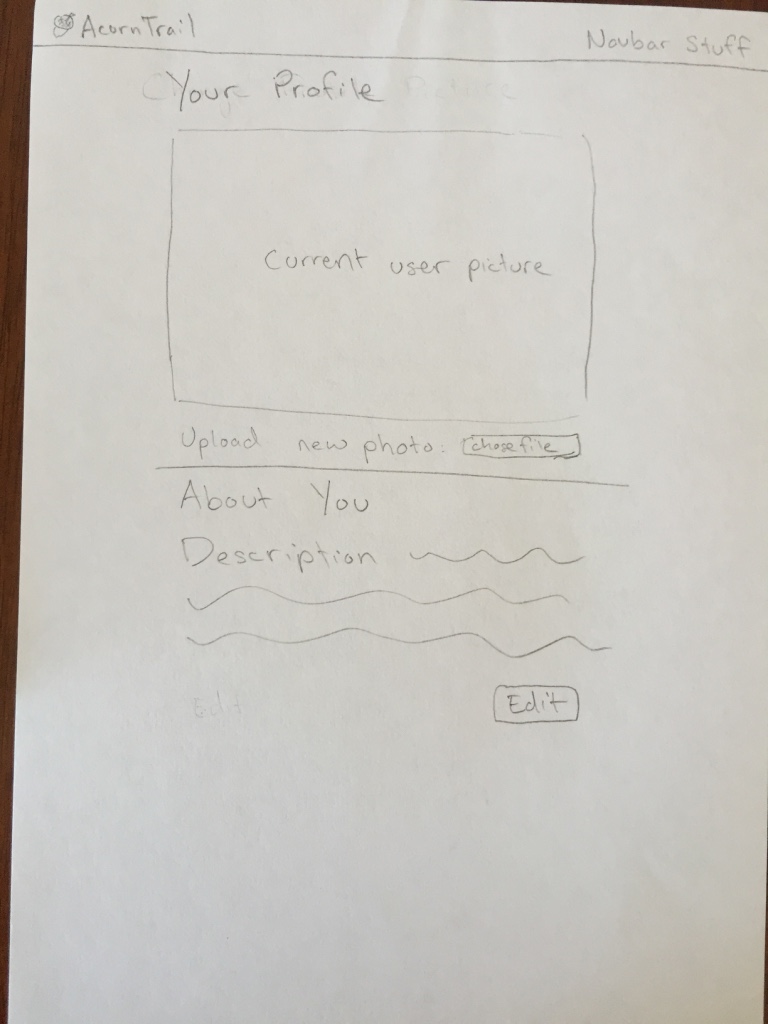 AcornTrail
Navbar Stuff
Your Profile
Current user picture
Upload new photo: chose file
About You
Description
Edit
Edit